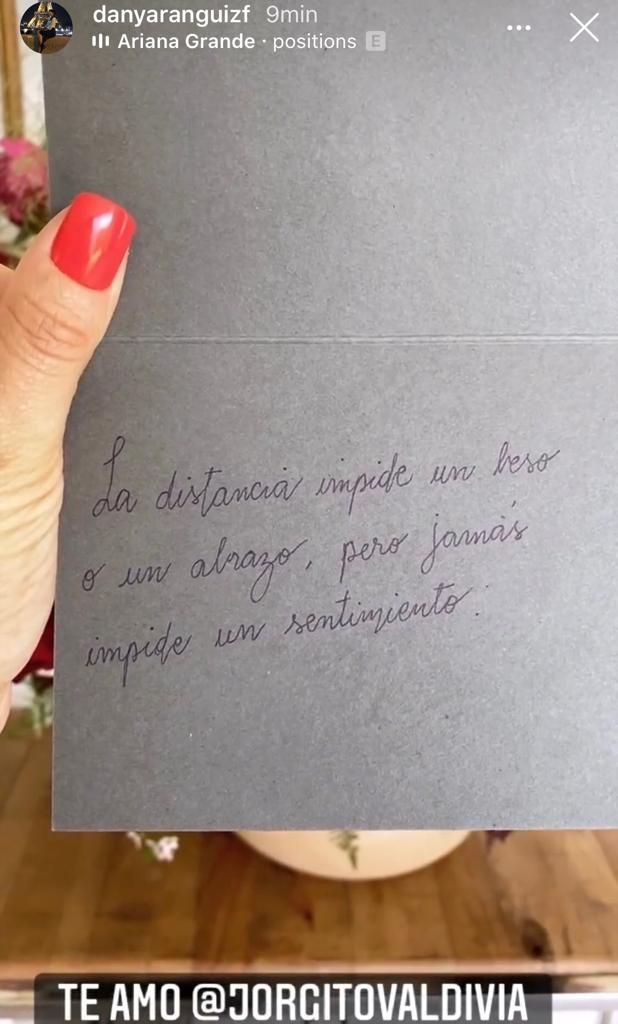 danyaranguizf 9min
Ariana Grande · positions E
La distancia impide un beso
o un abrazo, pero jamás
impide un sentimiento.
TE AMO @JORGITOVALDIVIA